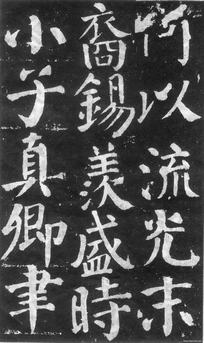 可以流光末
裔錫羨盛時
小子真卿聿